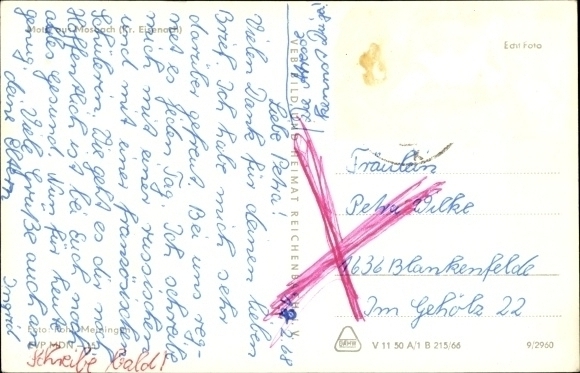 Motiv aus Mosbach (Kr. Eisenach)
Echt Foto
Liebe Petra!
Vielen Dank für deinen lieben
Brief. Ich habe mich sehr
darüber gefreut. Bei uns reg-
net es jeden Tag. Ich schreibe
mich mit einer russischen
und mit einer französischen
Schülerin. Wie geht es dir noch
Hoffentlich ist bei Euch noch
alles gesund. Nun für heute
genug. Viele Grüße auch an
deine Eltern
Ingrid
Schreibe bald!
VEB BILD UND HEIMAT REICHENBACH I. V.
Fräulein
Petra Wilke
1636 Blankenfelde
Im Gehölz 22
V 11 50 A/1 B 215/66
9/2960